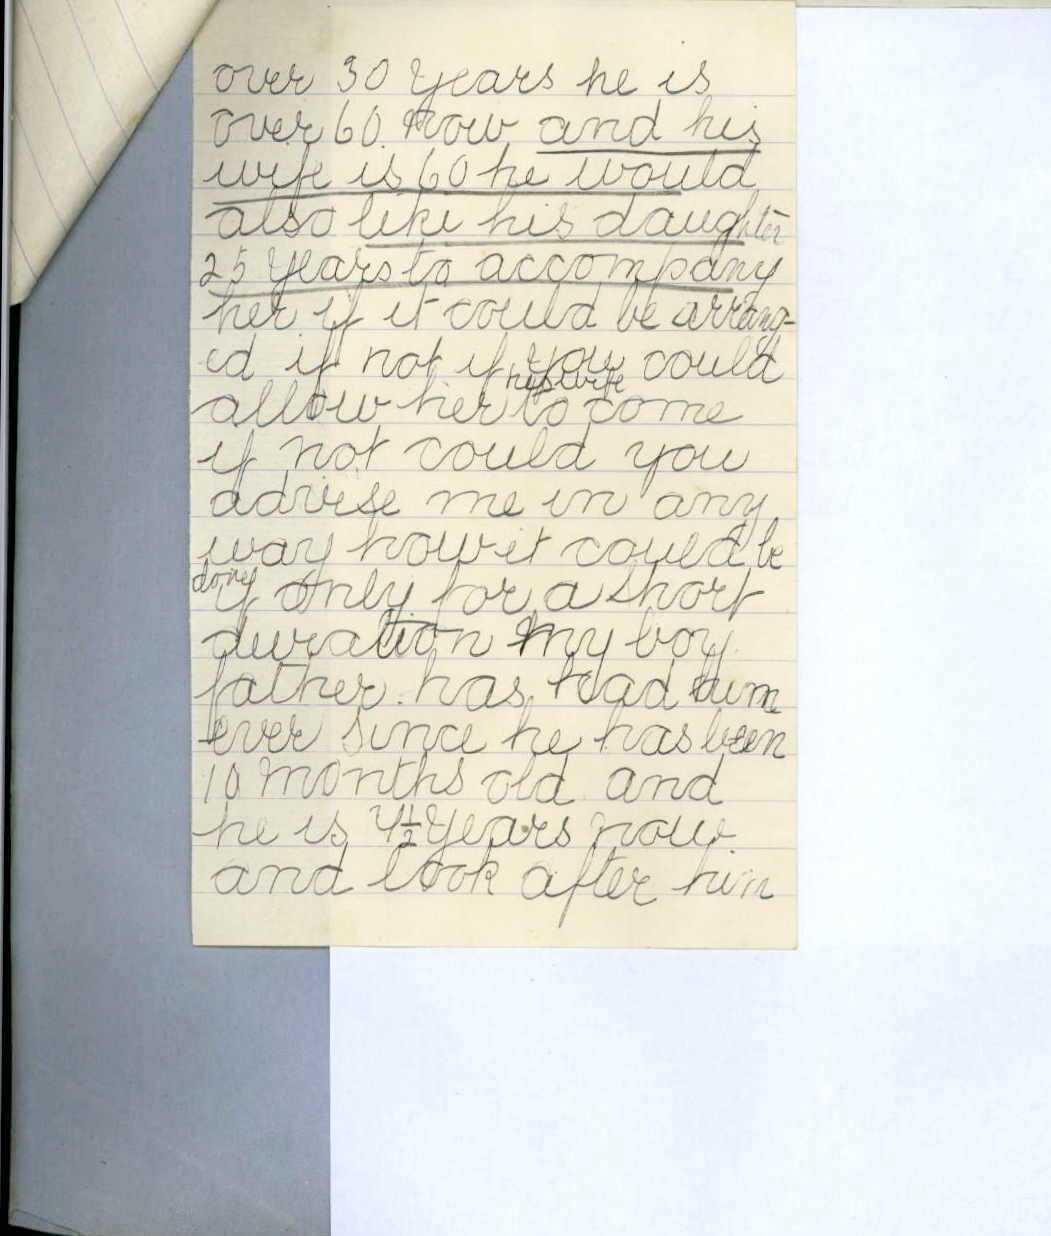 over 30 years he is
over 60 now and his
wife is 60 he would
also like his daughter
25 years to accompany
her if it could be arrang-
ed if not if you could
his wife
allow her to come
if not could you
advise me in any
way how it could be
done
if only for a short
duration my boy
father has had him
ever since he has been
10 months old and
he is 4½ years now
and look after him